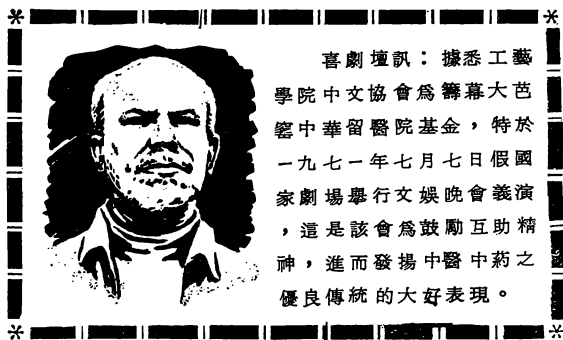 喜劇壇訊：據悉工藝
學院中文協會爲籌幕大芭
窰中華留醫院基金，特於
一九七一年七月七日假國
家劇場舉行文娛晚會義演
，這是該會爲鼓勵互助精
神，進而發揚中醫中葯之
優良傳統的大好表現。